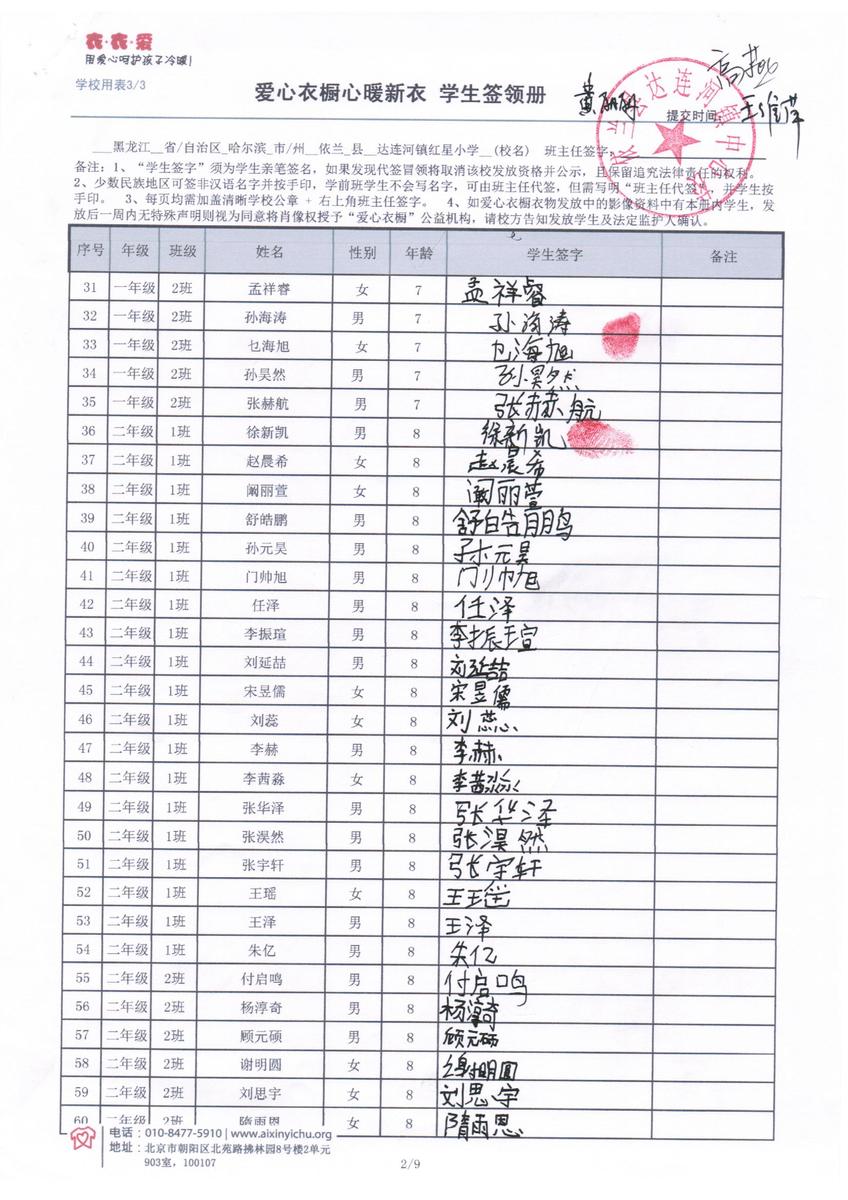 衣·衣·爱
用爱心呵护孩子冷暖!
学校用表3/3
爱心衣橱心暖新衣 学生签领册
提交时间
黑龙江__省/自治区_哈尔滨_市/州__依兰_县__达连河镇红星小学__(校名) 班主任签字:
备注: 1、“学生签字”须为学生亲笔签名,如果发现代签冒领将取消该校发放资格并公示,且保留追究法律责任的权利。
2、少数民族地区可签非汉语名字并按手印,学前班学生不会写名字,可由班主任代签,但需写明“班主任代签”,并学生按
手印。 3、每页均需加盖清晰学校公章 + 右上角班主任签字。 4、如爱心衣橱衣物发放中的影像资料中有本册内学生,发
放后一周内无特殊声明则视为同意将肖像权授予“爱心衣橱”公益机构,请校方告知发放学生及法定监护人确认。
序号 年级 班级 姓名 性别 年龄 学生签字 备注
31 一年级 2班 孟祥睿 女 7 孟祥睿
32 一年级 2班 孙海涛 男 7 孙海涛
33 一年级 2班 乜海旭 女 7 乜海旭
34 一年级 2班 孙昊然 男 7 孙昊然
35 一年级 2班 张赫航 男 7 张赫航
36 二年级 1班 徐新凯 男 8 徐新凯
37 二年级 1班 赵晨希 女 8 赵晨希
38 二年级 1班 阚丽萱 女 8 阚丽萱
39 二年级 1班 舒皓鹏 男 8 舒皓鹏
40 二年级 1班 孙元昊 男 8 孙元昊
41 二年级 1班 门帅旭 男 8 门帅旭
42 二年级 1班 任泽 男 8 任泽
43 二年级 1班 李振瑄 男 8 李振瑄
44 二年级 1班 刘延喆 男 8 刘延喆
45 二年级 1班 宋昱儒 女 8 宋昱儒
46 二年级 1班 刘蕊 女 8 刘蕊
47 二年级 1班 李赫 男 8 李赫
48 二年级 1班 李茜淼 女 8 李茜淼
49 二年级 1班 张华泽 男 8 张华泽
50 二年级 1班 张淏然 男 8 张淏然
51 二年级 1班 张宇轩 男 8 张宇轩
52 二年级 1班 王瑶 女 8 王瑶
53 二年级 1班 王泽 男 8 王泽
54 二年级 1班 朱亿 男 8 朱亿
55 二年级 2班 付启鸣 男 8 付启鸣
56 二年级 2班 杨淳奇 男 8 杨淳奇
57 二年级 2班 顾元硕 男 8 顾元硕
58 二年级 2班 谢明圆 女 8 谢明圆
59 二年级 2班 刘思宇 女 8 刘思宇
60 二年级 2班 隋雨恩 女 8 隋雨恩
电话: 010-8477-5910 | www.aixinyichu.org
地址: 北京市朝阳区北苑路拂林园8号楼2单元
903室, 100107
2/9